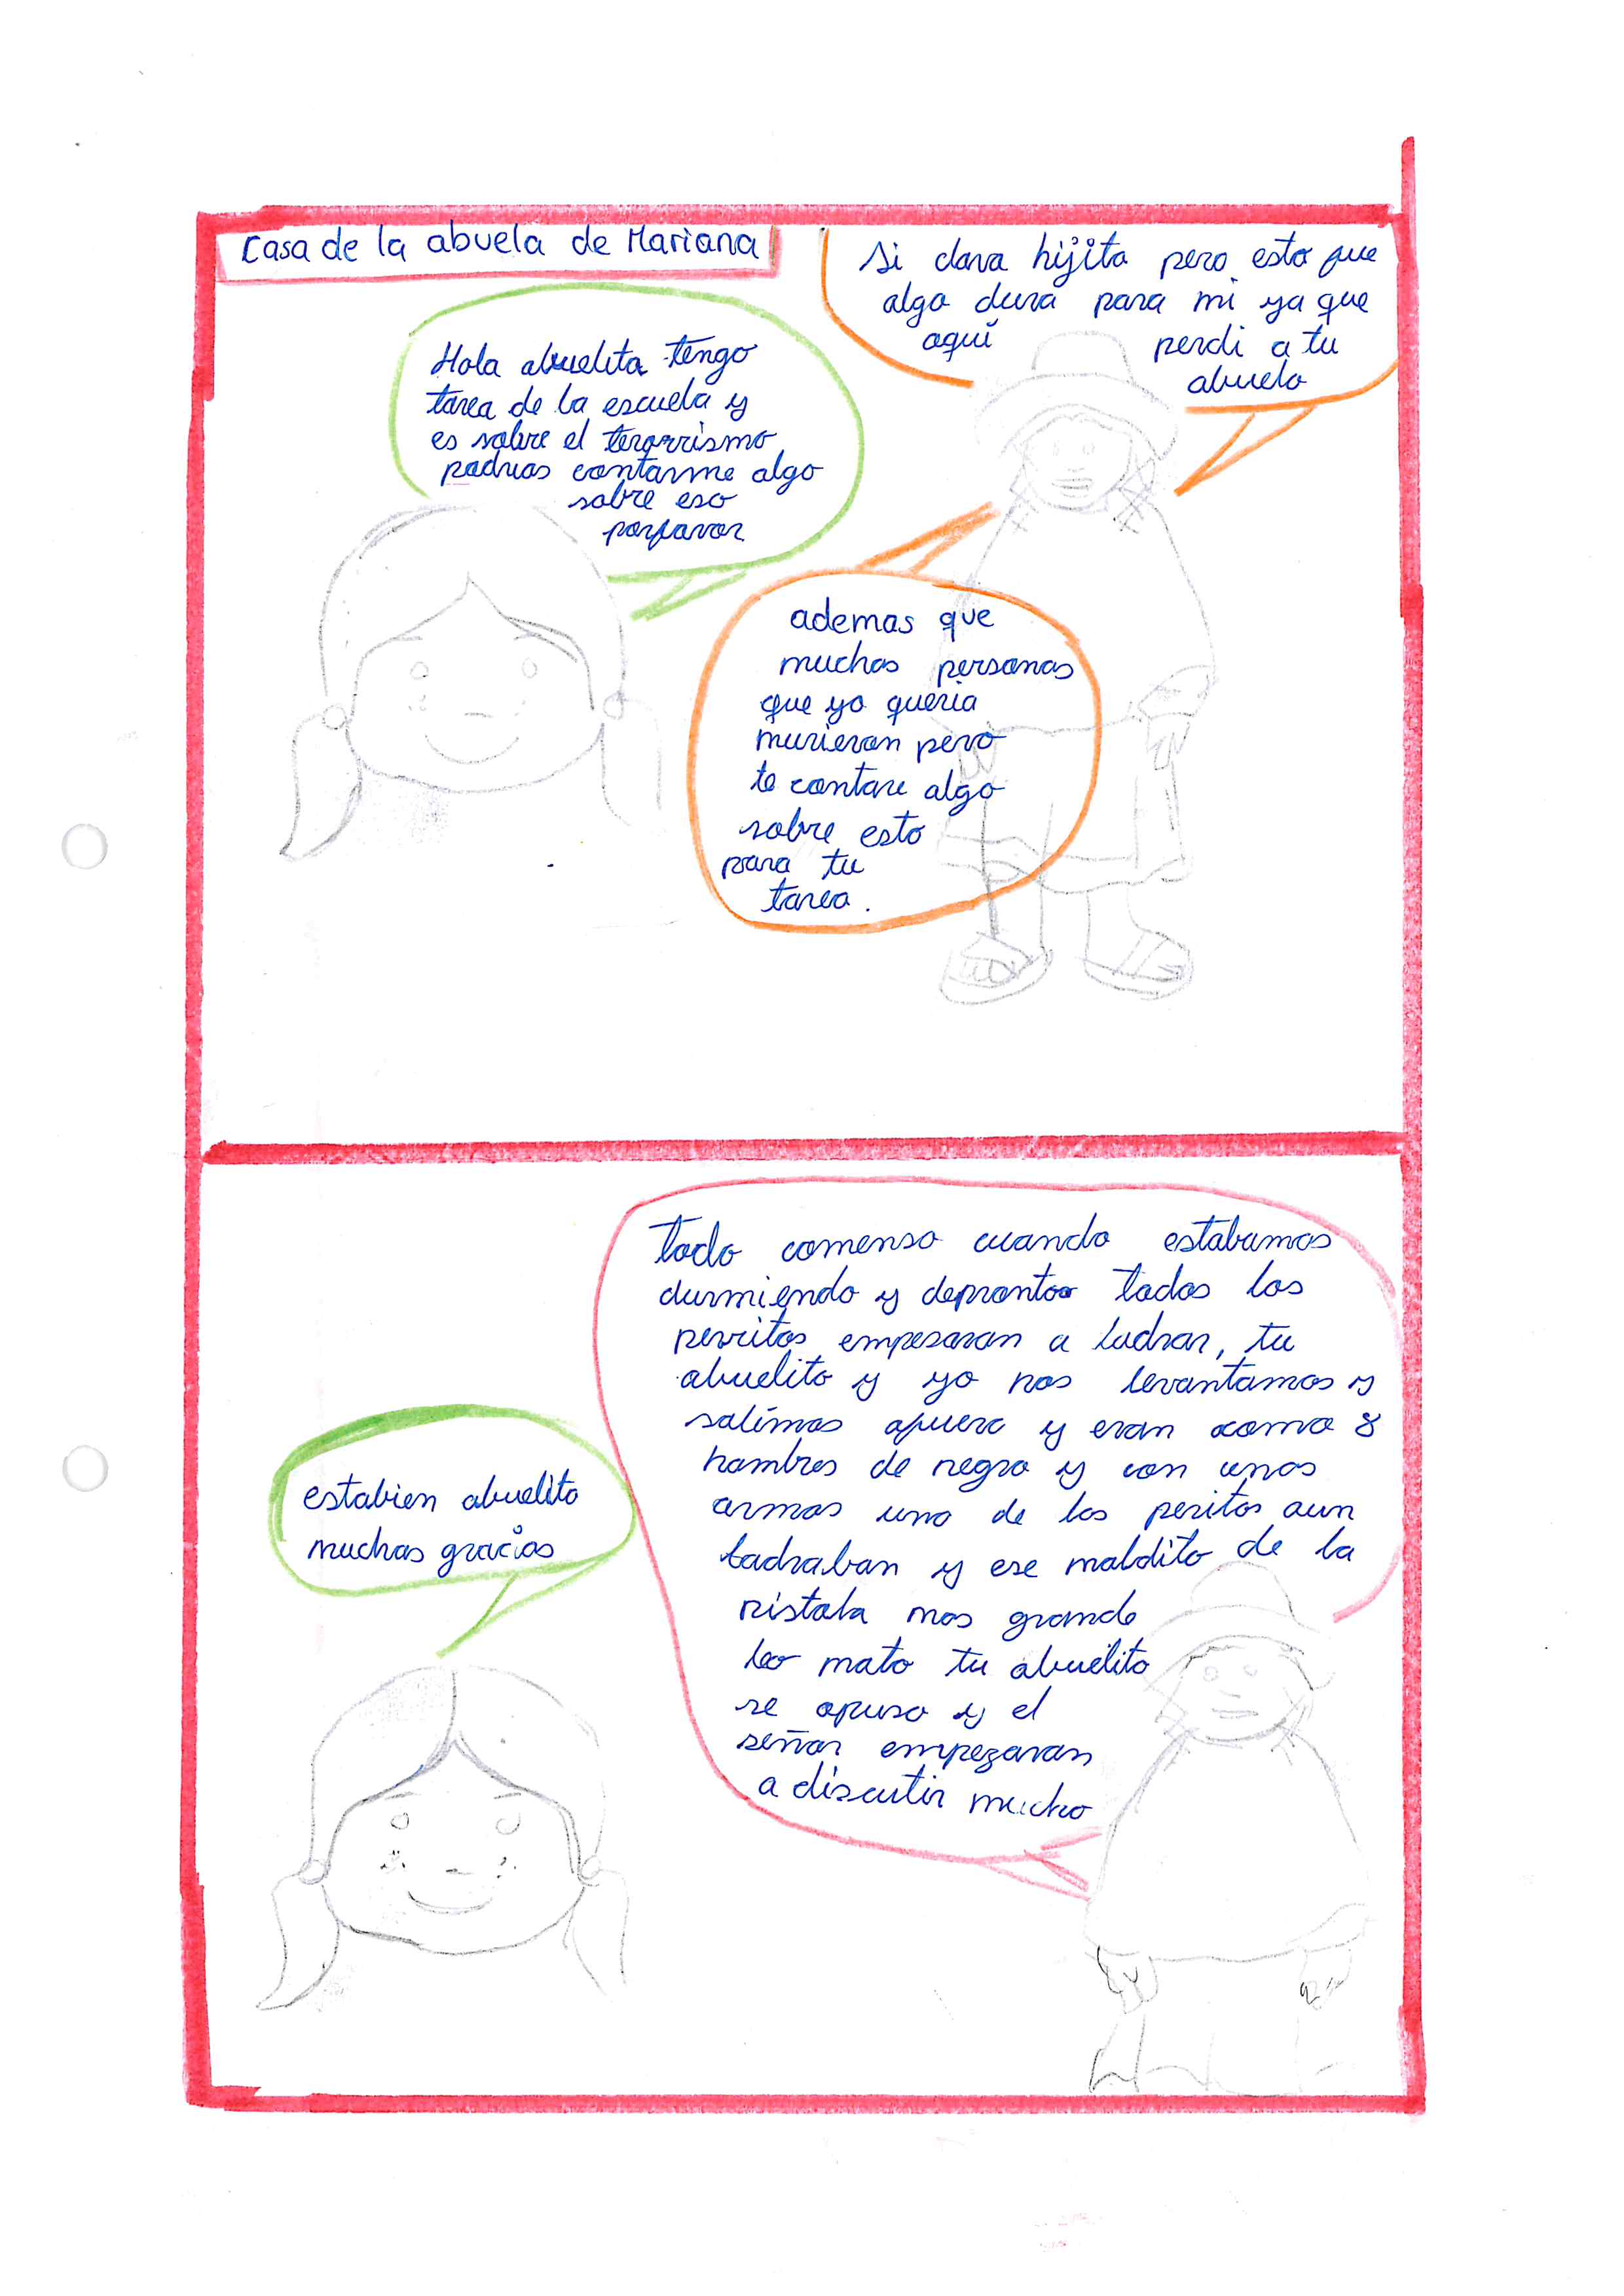 Casa de la abuela de Mariana
Hola abuelita tengo
tarea de la escuela y
es sobre el terorrismo
podrias contarme algo
sobre eso
porfavor
Si clara hijita pero esto fue
algo dura para mi ya que
aquí perdi a tu
abuelo
ademas que
muchas personas
que yo queria
murieron pero
te contare algo
sobre esto
para tu
tarea.
estabien abuelita
muchas gracias
todo comenso cuando estabamos
durmiendo y depronto todos los
perritos empesaron a ladrar, tu
abuelito y yo nos levantamos y
salímos afuera y eran como 8
hombres de negro y con unas
armas uno de los peritos aun
ladraban y ese maldito de la
pistola mas grande
lo mato tu abuelito
se opuso y el
señor empezaron
a discutir mucho